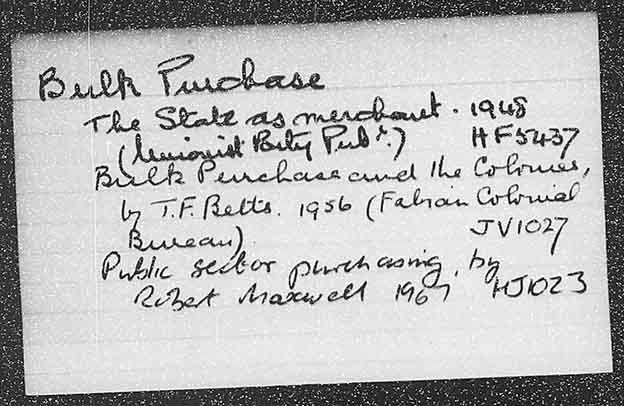 Bulk Purchase
The State as merchant. 1948
(Unionist Party Pubn.) HF5437
Bulk Purchase and the Colonies,
by T.F. Betts. 1956 (Fabian Colonial
Bureau). JV1027
Public sector purchasing, by
Robert Maxwell 1967 HJ1023